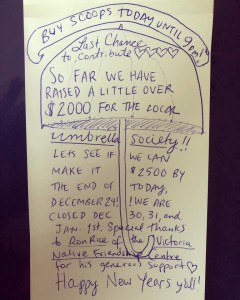 BUY SCOOPS TODAY UNTIL 9pm!
Last Chance
to contribute ♡♡♡♡
SO FAR WE HAVE
RAISED A LITTLE OVER
$2000 FOR THE LOCAL
umbrella society!!
LETS SEE IF WE CAN
MAKE IT $2500 BY
THE END OF TODAY,
DECEMBER 29! ! WE ARE
CLOSED DEC 30, 31, and
JAN. 1st. Special thanks
to Ron Rice of the Victoria
Native Friendship Centre
for his generous support ♡
Happy New Years y'all!